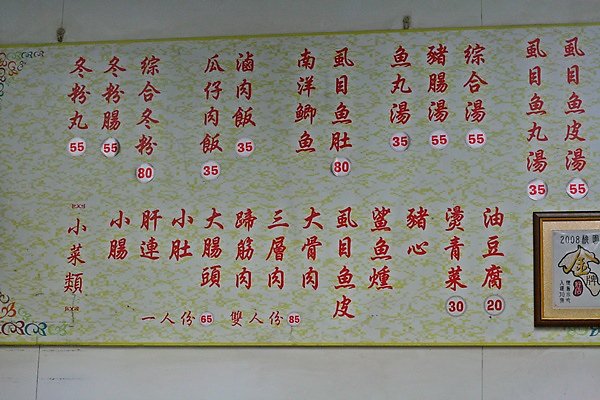 虱目魚皮湯 55
虱目魚丸湯 35
綜合湯 55
豬腸湯 55
魚丸湯 35
虱目魚肚 80
南洋鯽魚
滷肉飯 35
瓜仔肉飯 35
綜合冬粉 80
冬粉腸 55
冬粉丸 55
油豆腐 20
燙青菜 30
豬心
鯊魚煙
虱目魚皮
大骨肉
三層肉
蹄筋肉
大腸頭
小肚
肝連
小腸
小菜類
一人份 65 雙人份 85
2008
金牌